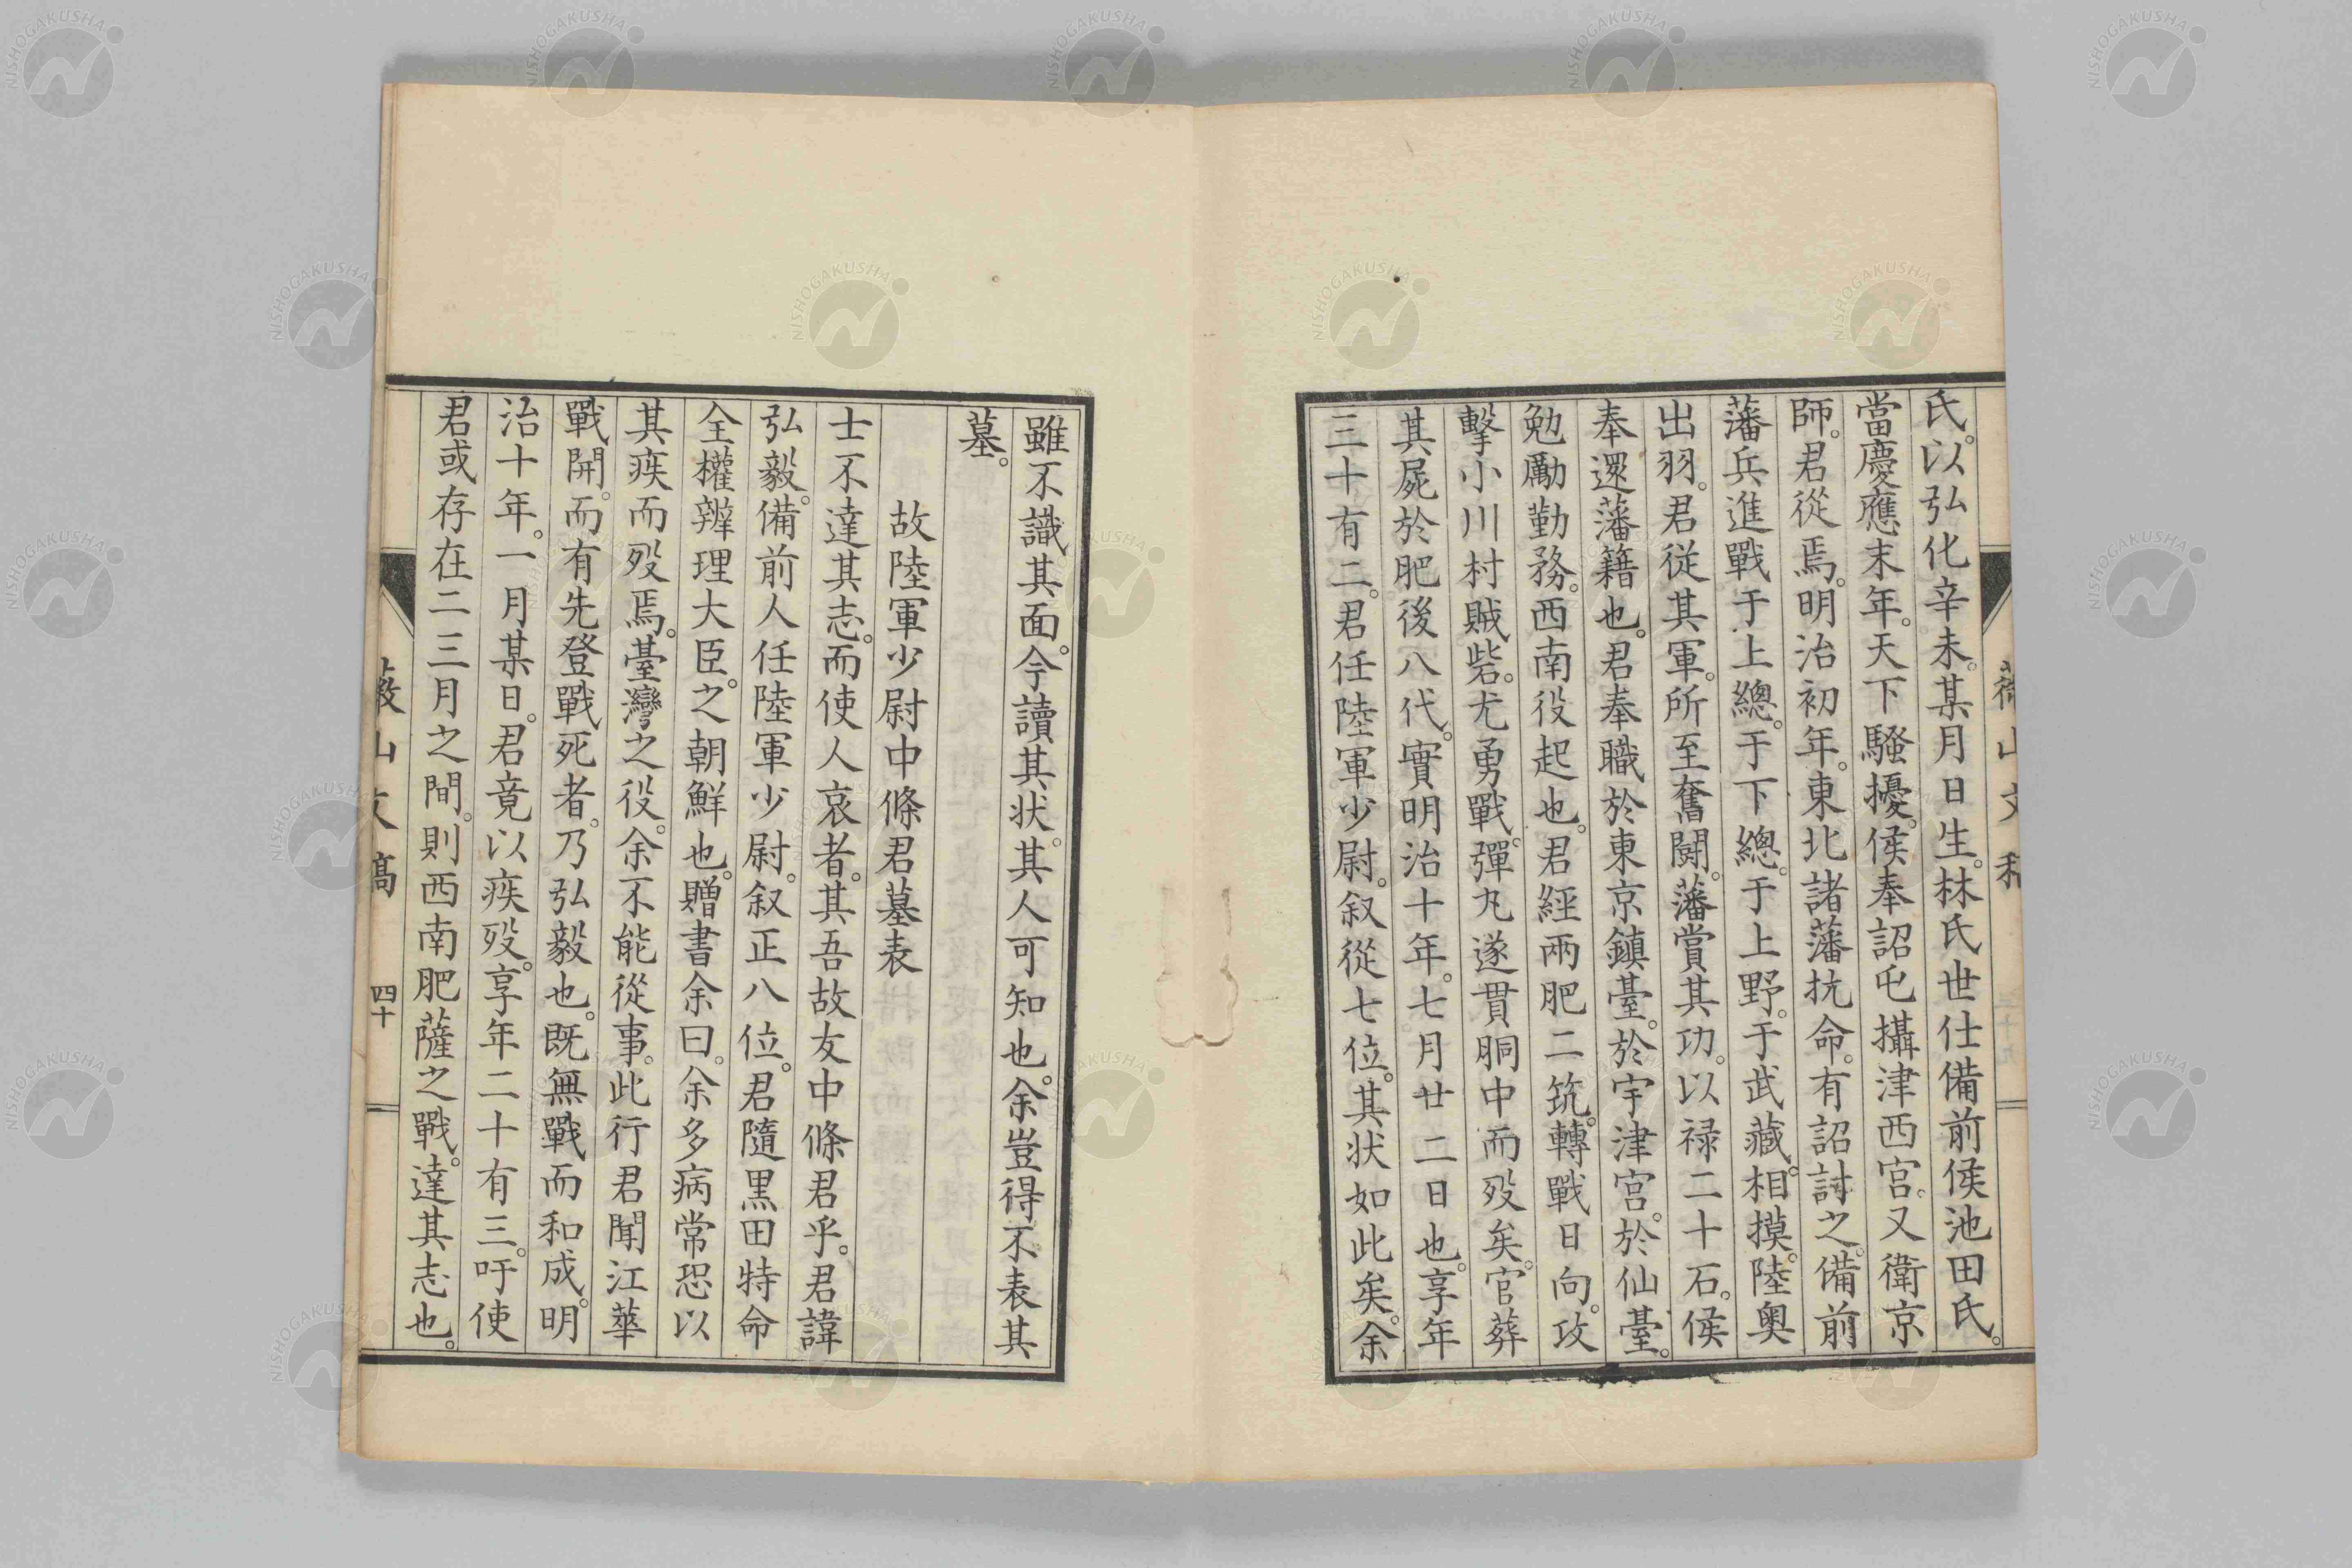 氏。以弘化辛未。某月日生。林氏世仕備前侯池田氏。
當慶應末年。天下騷擾。侯奉詔屯攝津西宮。又衛京
師。君從焉。明治初年。東北諸藩抗命。有詔討之。備前
藩兵進戰于上總。于下總。于上野。于武藏。相摸。陸奧
出羽。君從其軍。所至奮鬪。藩賞其功。以祿二十石。侯
奉還藩籍也。君奉職於東京鎮臺。於宇津宮。於仙臺。
勉勵勤務。西南役起也。君經兩肥二筑。轉戰日向。攻
擊小川村賊砦。尤勇戰。彈丸遂貫胴中而歿矣。官葬
其屍於肥後八代。實明治十年。七月廿二日也。享年
三十有二。君任陸軍少尉。叙從七位。其状如此矣。余
雖不識其面。今讀其状。其人可知也。余豈得不表其
墓。
故陸軍少尉中條君墓表
士不達其志。而使人哀者。其吾故友中條君乎。君諱
弘毅。備前人任陸軍少尉。叙正八位。君隨黒田特命
全權辦理大臣。之朝鮮也。贈書余曰。余多病常恐以
其疾而歿焉。臺灣之役。余不能從事。此行君聞江華
戰開。而有先登戰死者。乃弘毅也。既無戰而和成。明
治十年。一月某日。君竟以疾歿。享年二十有三。吁使
君或存在二三月之間。則西南肥薩之戰。達其志也。
山文稿 四十